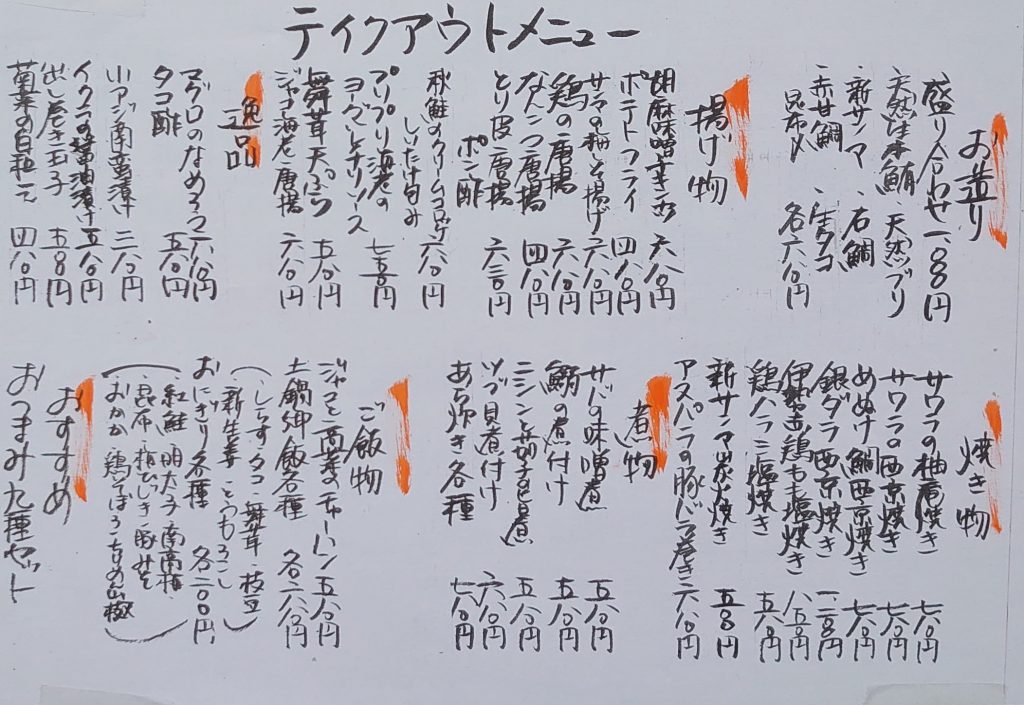 テイクアウトメニュー
お造り
盛り合わせ 一、八〇〇円
・天然生本鮪 ・天然ブリ
・新サンマ ・石鯛
・赤甘鯛 ・生タコ
昆布〆 各六八〇円
揚げ物
胡麻味噌辛手羽 六八〇円
ポテトフライ 四八〇円
サワラの梅しそ揚げ 六八〇円
鶏の唐揚 六八〇円
なんこつ唐揚 四八〇円
とり皮唐揚
ポン酢 六三〇円
秋鮭のクリームコロッケ
しいたけ包み 六八〇円
プリプリ海老の
ヨーグルトチリソース 七五〇円
舞茸天ぷら 五八〇円
ジャコ海老唐揚 六八〇円
逸品
マグロのなめろう 六八〇円
タコ酢 五八〇円
小アジ南蛮漬け 三八〇円
イクラの醤油漬け 五八〇円
出し巻き玉子 五五〇円
菊菜の白和え 四八〇円
焼き物
サワラの柚庵焼き 七八〇円
サワラの西京焼き 七八〇円
めぬけ鯛西京焼き 七八〇円
銀ダラ西京焼き 一、二八〇円
伊達鶏もも塩焼き 八五〇円
鶏ハラミ塩焼き 五八〇円
新サンマ炭火焼き 五五〇円
アスパラの豚バラ巻き 六八〇円
煮物
サバの味噌煮 五八〇円
鮪の煮付け 五八〇円
ニシンと茄子の旨煮 五八〇円
ツブ貝煮付け 六八〇円
あら炊き各種 七八〇円
ご飯物
ジャコと高菜のチャーハン 五八〇円
土鍋御飯各種 各一、六八〇円
(・しらす・タコ・舞茸・枝豆
・新生姜・とうもろこし)
おにぎり各種 各二〇〇円
(・紅鮭・明太子・南高梅・
・昆布・梅ひじき・豚みそ
・おかか・鶏そぼろ・ちりめん山椒)
おすすめ
おつまみ九種セット